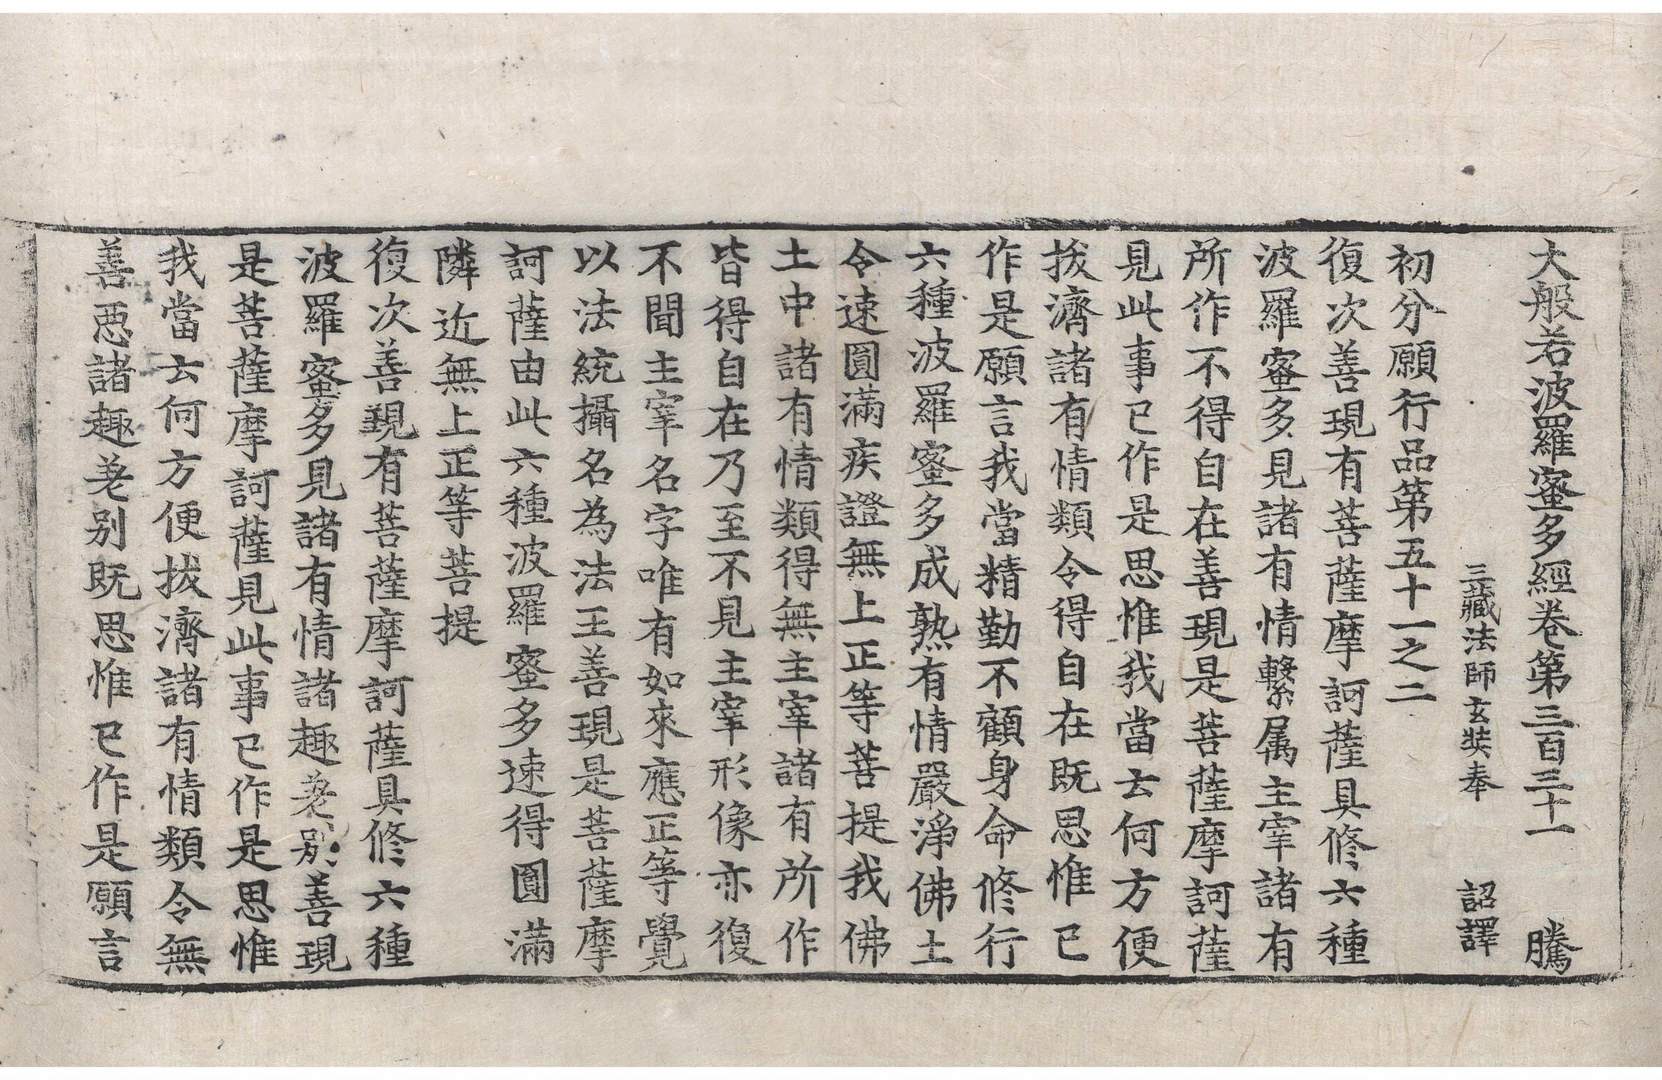 大般若波羅蜜多經卷第三百三十一 騰
三藏法師玄奘奉 詔譯
初分願行品第五十一之二
復次善現有菩薩摩訶薩具修六種
波羅蜜多見諸有情繫属主宰諸有
所作不得自在善現是菩薩摩訶薩
見此事已作是思惟我當云何方便
拔濟諸有情類令得自在既思惟已
作是願言我當精勤不顧身命修行
六種波羅蜜多成熟有情嚴淨佛土
令速圓滿疾證無上正等菩提我佛
土中諸有情類得無主宰諸有所作
皆得自在乃至不見主宰形像亦復
不聞主宰名字唯有如來應正等覺
以法統攝名為法王善現是菩薩摩
訶薩由此六種波羅蜜多速得圓滿
隣近無上正等菩提
復次善現有菩薩摩訶薩具修六種
波羅蜜多見諸有情諸趣差别善現
是菩薩摩訶薩見此事已作是思惟
我當云何方便拔濟諸有情類令無
善惡諸趣差别既思惟已作是願言